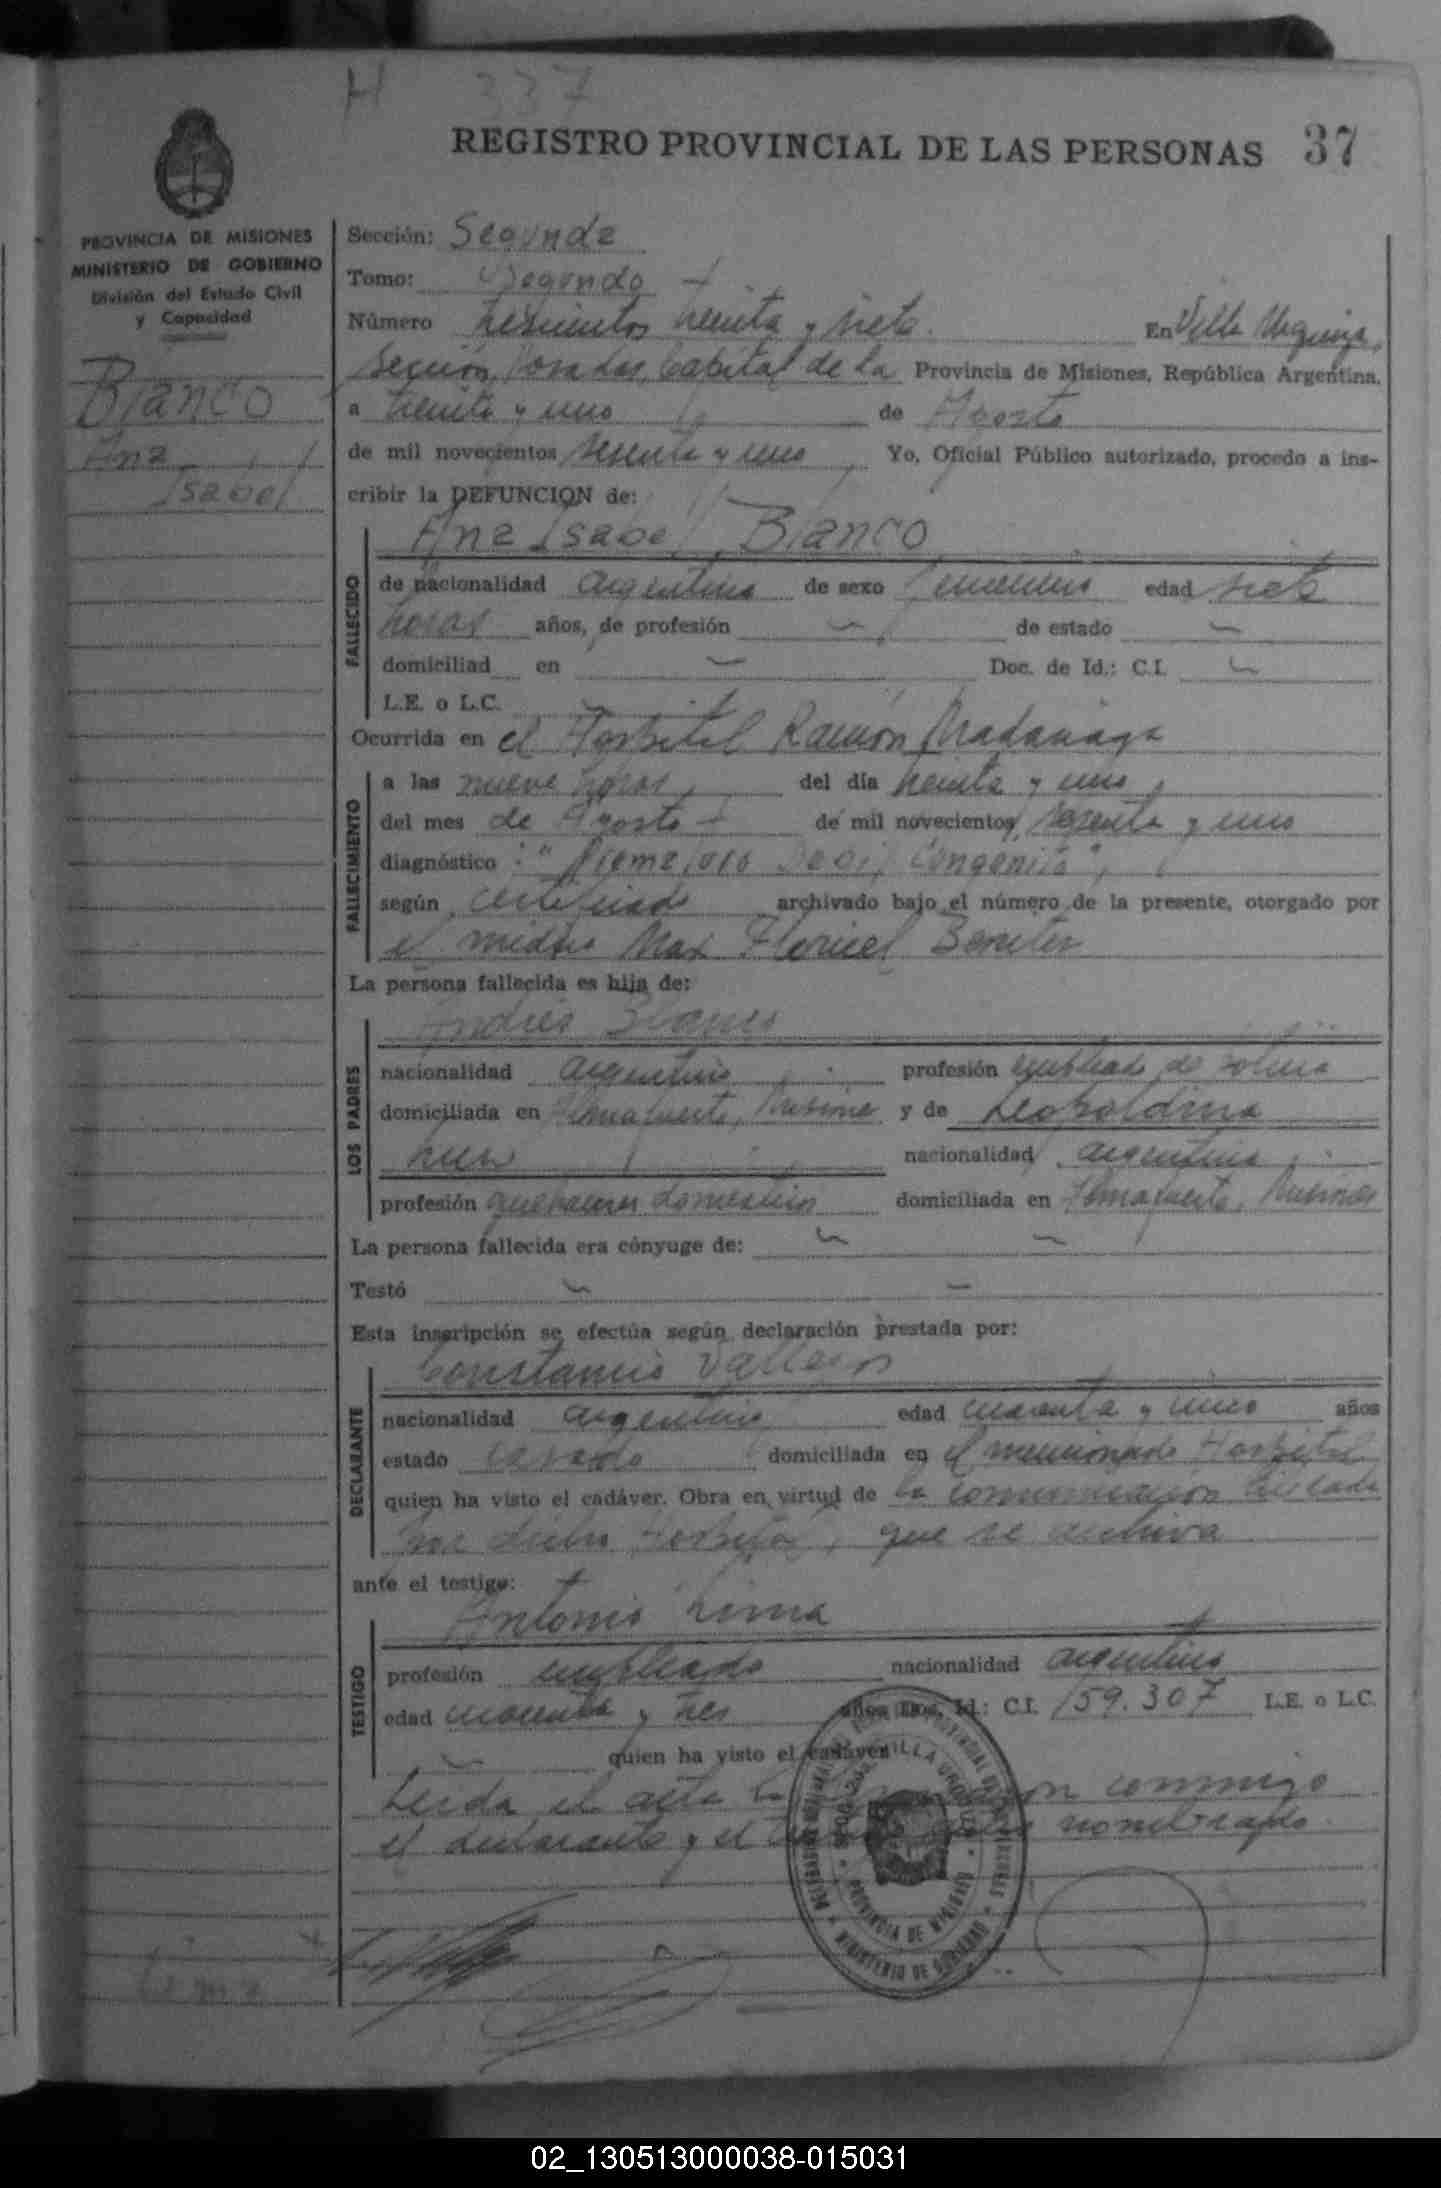 H 337
REGISTRO PROVINCIAL DE LAS PERSONAS 37
PROVINCIA DE MISIONES
MINISTERIO DE GOBIERNO
División del Estado Civil
y Capacidad
Blanco
Ana
Isabel
Sección: Segunda
Tomo: Segundo
Número trescientos treinta y siete. En Villa Urquiza,
Sección Posadas, Capital de la Provincia de Misiones, República Argentina,
a treinta y uno de Agosto
de mil novecientos sesenta y uno, Yo, Oficial Público autorizado, procedo a ins-
cribir la DEFUNCION de:
Ana Isabel Blanco
FALLECIDO
de nacionalidad argentina de sexo femenino edad siete
horas años, de profesión de estado
domiciliad en Doc. de Id.: C.I.
L.E. o L.C.
Ocurrida en el Hospital Ramón Madariaga
FALLECIMIENTO
a las nueve horas, del día treinta y uno,
del mes de Agosto de mil novecientos, sesenta y uno
diagnóstico: "Prematuro Debil Congenito",
según certificado archivado bajo el número de la presente, otorgado por
el médico Max Benitez
La persona fallecida es hija de:
LOS PADRES
Andrés Blanco
nacionalidad argentino profesión empleado de Policia
domiciliada en Almafuerte, Misiones y de Leopoldina
nacionalidad argentina
profesión quehaceres domesticos domiciliada en Almafuerte, Misiones
La persona fallecida era cónyuge de:
Testó
Esta inscripción se efectúa según declaración prestada por:
DECLARANTE
Constancio Vallejos
nacionalidad argentino edad cuarenta y cinco años
estado casado domiciliada en el mencionado Hospital
quien ha visto el cadáver. Obra en virtud de la comunicación enviada
por dicho Hospital, que se archiva
ante el testigo:
TESTIGO
Antonio Lima
profesión empleado nacionalidad argentino
edad cuarenta y tres años Doc. Id.: C.I. 159.307 L.E. o L.C.
quien ha visto el cadáver
Leida el acta la conmigo
el declarante y el testigo nombrado.
VILLA URQUIZA
PROVINCIA DE MISIONES
MINISTERIO DE GOBIERNO
02_130513000038-015031